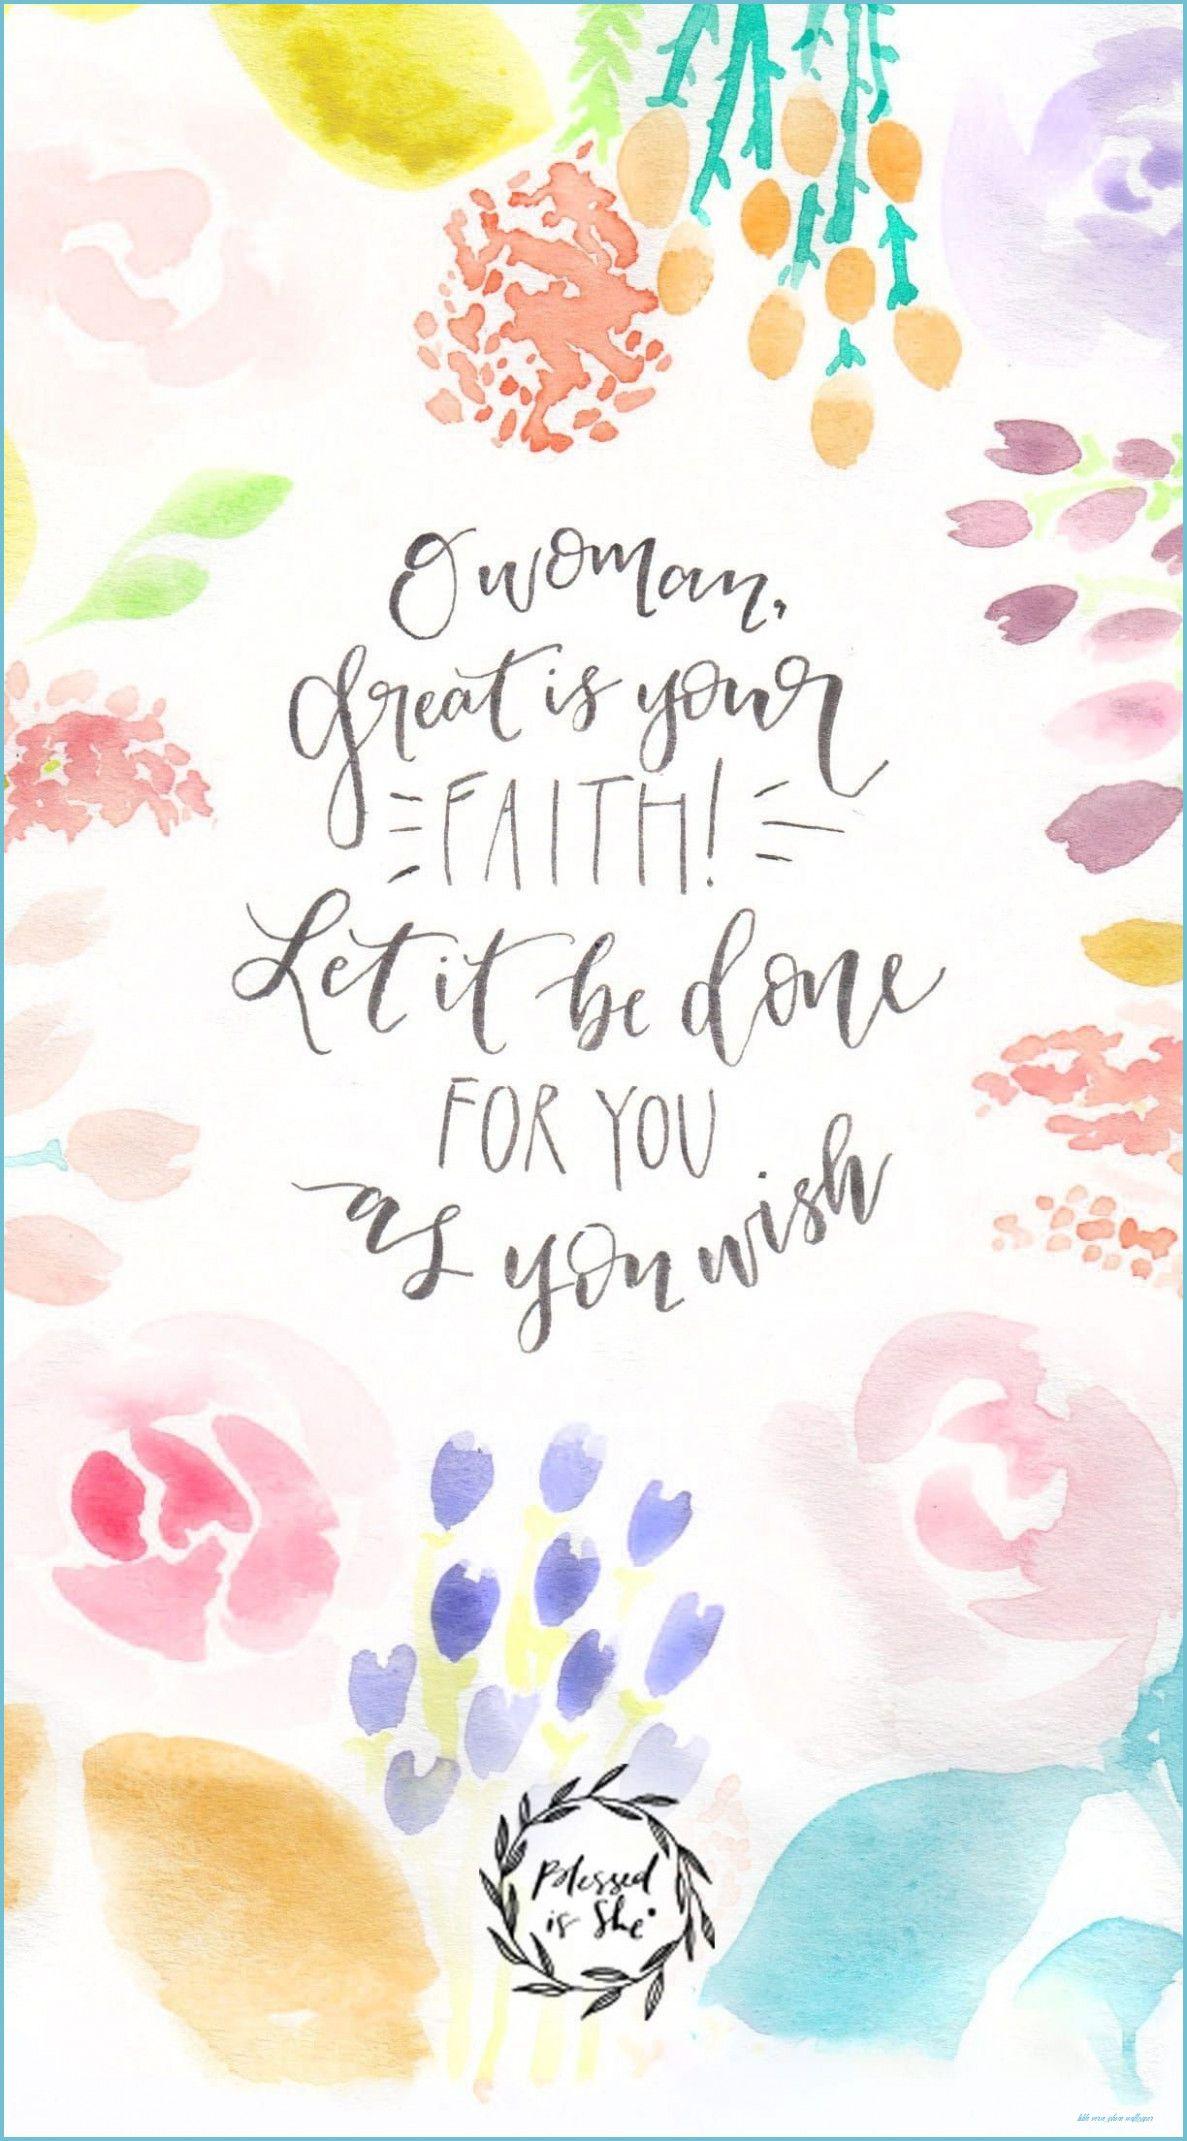 O woman,
Great is your
FAITH!
Let it be done
FOR YOU
as you wish
Blessed
is She
bible verse phone wallpaper